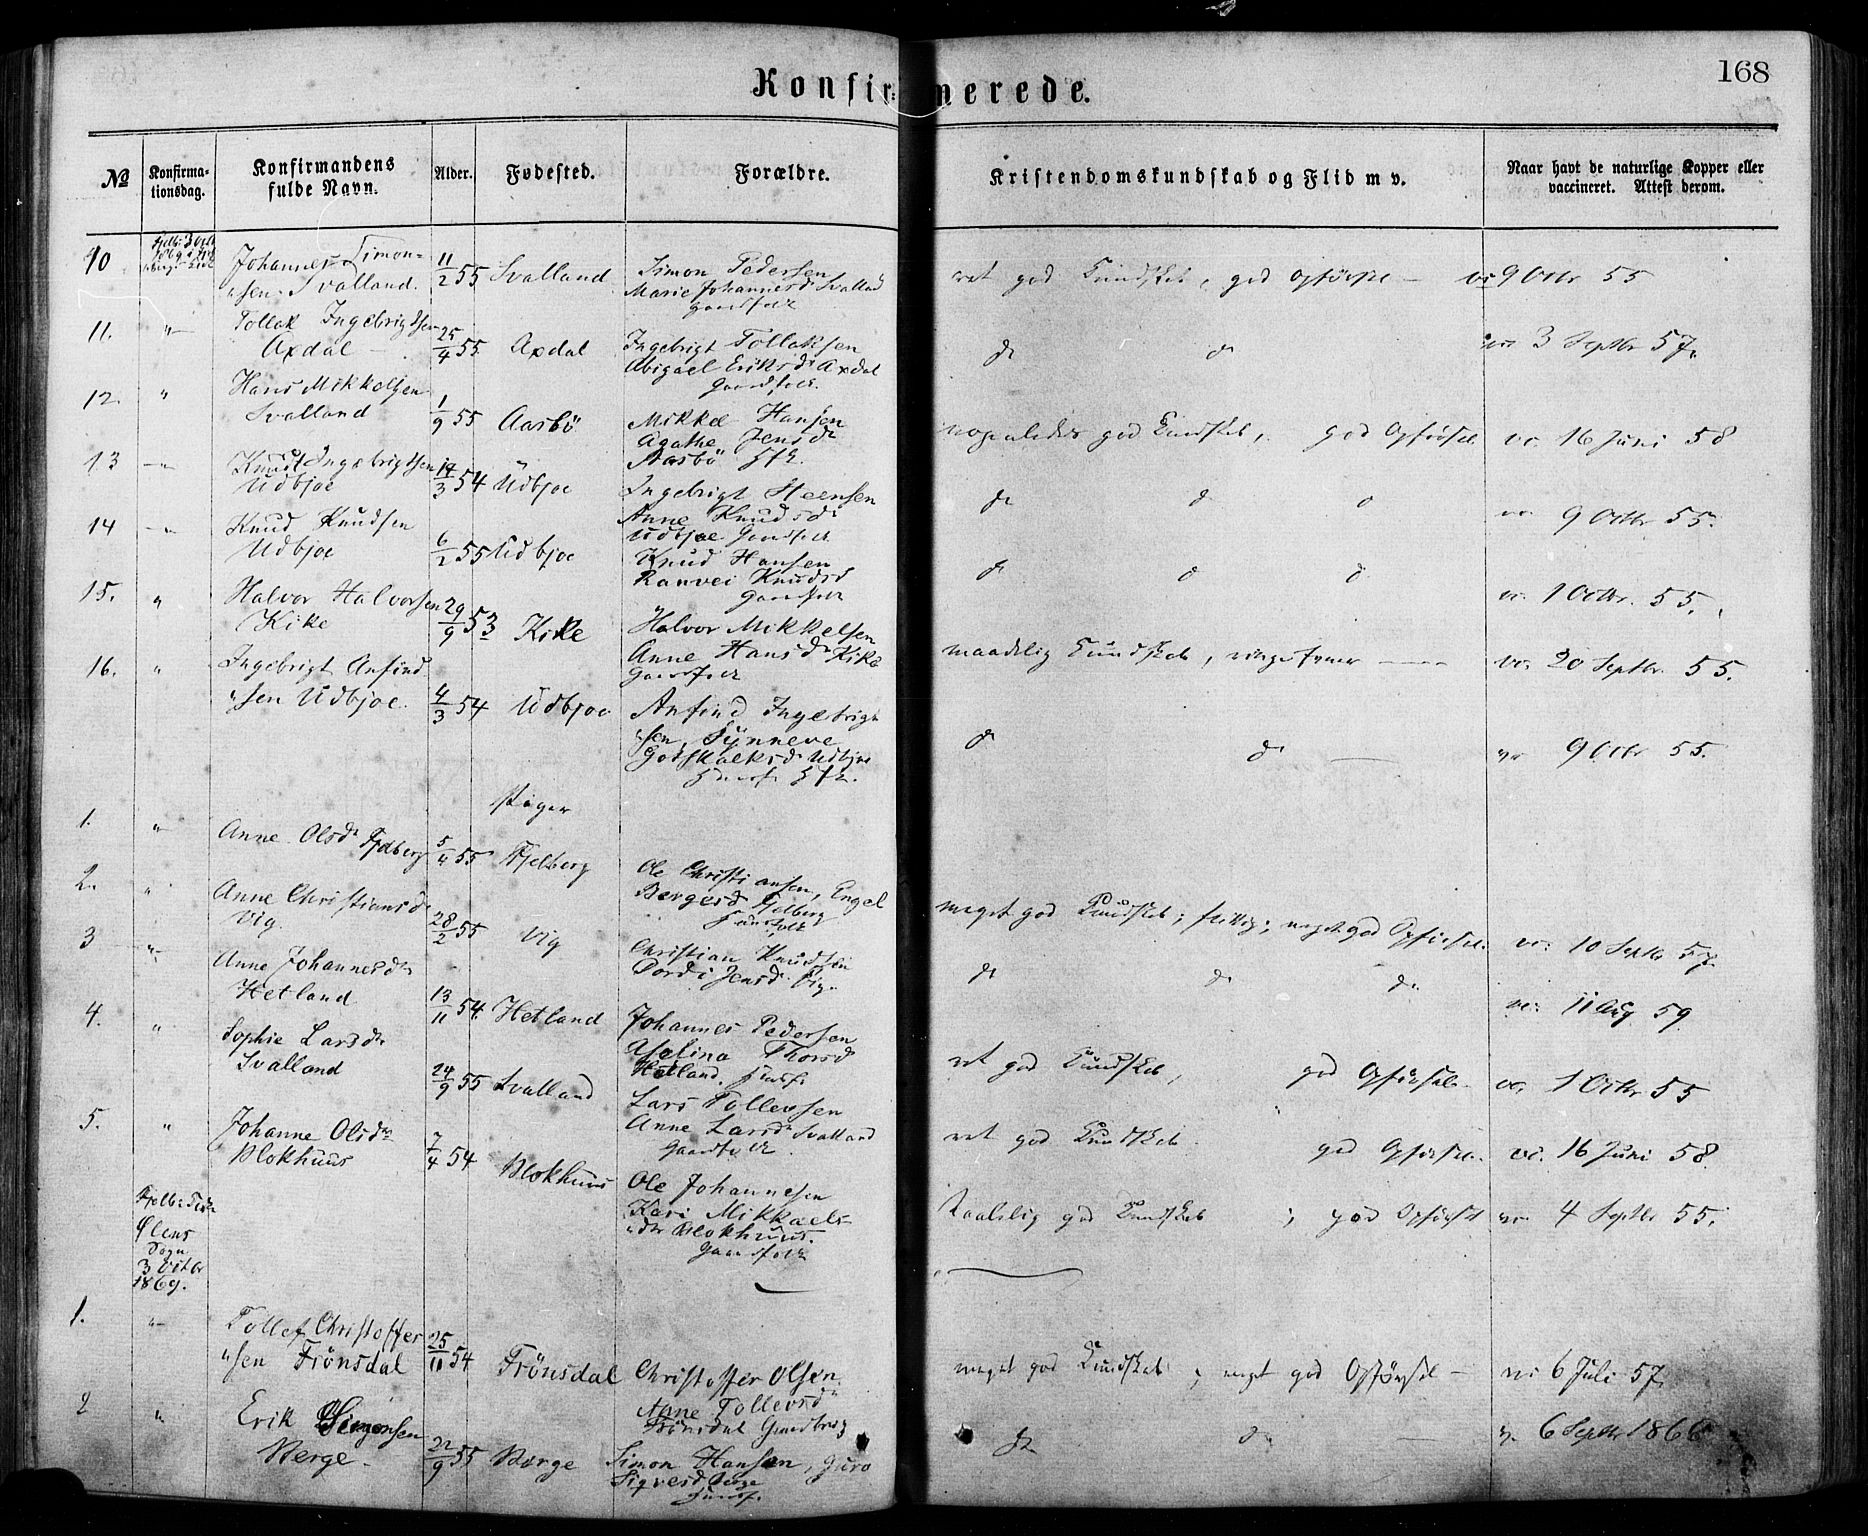 168
Konfirmerede.
№
Konfirma-
tionsdag.
Konfirmandens
fulde Navn.
Alder.
Fødested.
Forældre.
Kristendomskundskab og Flid m v.
Naar havt de naturlige Kopper eller
vaccineret. Attest derom.
10
Johannes Simon-
"sen Svalland.
11/2 55
Svalland
Simon Pedersen
Marie Johannesdr Svalland
Gaardfolk
ret god Kundskab, god Opførsel
vc 9 Octr 55
11.
"
Tollak Ingebrigtsen
Axdal
25/4 55
Axdal
Ingebrigt Tollaksen
Abigael Eriksdr Axdal
Gaardfolk
do do
3 Septbr 57.
12.
"
Hans Mikkelsen
Svalland
1/9 55
Aasbö
Mikkel Hansen
Agathe Jensdr
Aasbö
nogenledes god Kundskab, god Opførsel
vc. 16 Juni 58
13
"
Knudt Ingebrigtsen
Udbjoe
14/3 54
Udbjoe
Ingebrigt Steensen
Anne Knudsdr
Udbjoe Gaardfolk
do do do
9 Octbr 55.
14
"
Knud Knudsen
Udbjoe
6/2 55
Udbjoe
Knud Hansen
Ranvei Knudsd
Gaardfolk
do do do
vc. 1 Octbr. 55.
15.
"
Halvor Halvorsen
Kike
29/9 53
Kike
Halvor Mikkelsen
Anne Hansdr Kike
Gaardfolk
maadelig Kundskab,
vc. 20 Septbr. 55.
16.
"
Ingebrigt Anfind
"sen Udbjoe.
4/3 54
Udbjoe
Anfind Ingebrigt
"sen, Synneve
Godskalksdr Udbjoe
do do
9 Octbr 55.
Piger
1.
"
Anne Olsdr Fjelberg
5/4 55
Fjelberg
Ole Christiansen, Engel
Bergesd Fjelberg
meget god Kundskab; flittig; meget god Opførsel.
vc. 10 Septb 57
2.
"
Anne Christiansdr
Vig.
28/2 55
Vig
Christian Knudsen
Dordi Jensdr Vig.
do do do
vc. 11 Aug 59
3
"
Anne Johannesdr
Hetland
13/11 54.
Hetland
Johannes Pedersen
Aselina Thorsd
Hetland.
ret god Kundskab, god Opførsel
vc. 1 Octbr 55
4.
"
Sophie Larsdr
Svalland
24/9 55
Svalland
Lars Tollevsen
Anne Larsdr Svalland
Gaardfolk
ret god Kundskab. god Opførsel.
vc. 16 Juni 58.
5.
"
Johanne Olsdr
Blokhuus
7/4 54
Blokhuus
Ole Johannesen
Kari Mikkaels-
"dr Blokhuus.
Gaardfolk
Taalelig god Kundskab ; god Opførsel
4 Septbr 55.
Ølens
Sogn
3 Octbr
1869.
1.
"
Tollef Christoffer
"sen Frönsdal
25/11 54
Frönsdal
Christoffer Olsen
Anne Tollevsdr
Frönsdal
meget god Kundskab; meget god Opførsel
6 Juli 57.
2
"
Erik Simonsen
Berge
22/9 55
Berge
Simon Hansen, Guro
Sigvesd Berge
do do
6 Septbr 1866